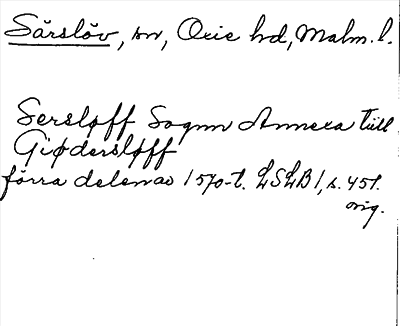 Särslöv, sn, Oxie hd, Malm. l.
Sersløff Sognn Annexa till
Giødersløff
förra delen av 1570-t. LSLB 1, s. 451.
orig.